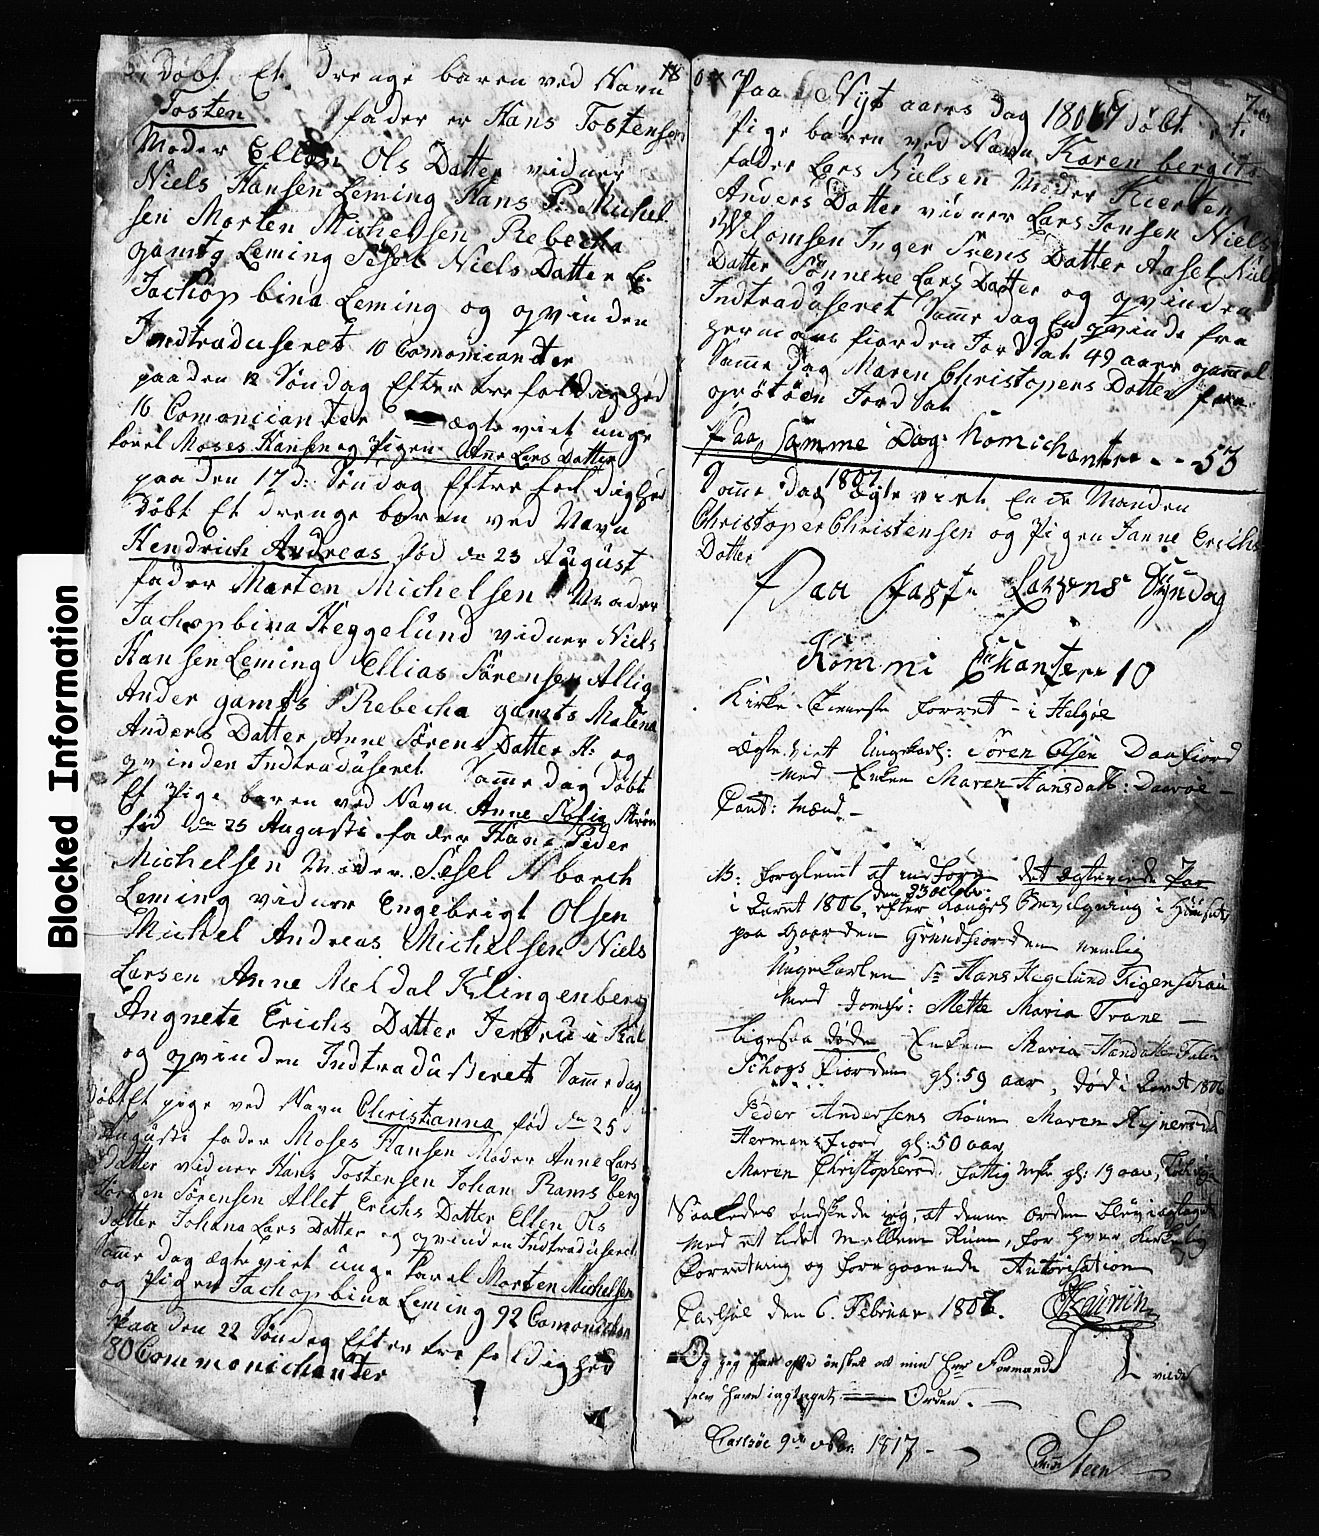 Døbt Et drenge baren ved Navn
Tosten fader er Hans Tostensen
Moder Ellen Ols Datter vidner
Niels Hansen Leming Hans P: Michel
sen Morten Michelsen Rebecha
gamtg Leming Sesel Niels Datter
Jachop bina Leming og qvinden
Indtraduseret 10 Comonicander
paaden 12 Søndag Efter trefoldighed
16 Comonicander ægteviet unge
karel Moses Hansen og Pigen Ane Lars Datter
paaden 17 d: Søndag Efttre fol dighed
Døbt Et drenge baren ved Navn
Hendrich Andreas fød den 23 August
fader Morten Michelsen Moder
Jachopbina Heggelund vidner Niels
Hansen Leming Ellias Sørensen Allig
Ander gamts Rebecha gamts Malena
Anders Datter Anne Sørens Datter H: og
qvinden Indtraduseret Samme dag døbt
Et Pige baren ved Navn Anne Sofig
fød den 25 Augusti fader Hans Peder
Michelsen Moder Sesel Aborch
Leming vidner Engebrigt Olsen
Michel Andreas Michelsen Niels
Larsen Anne Meldal Klingenberg
Angnete Erichs Datter
og qvinden Indtraduseret Samme dag
døbt Et pige ved Navn Christanna fød den 25
Augusti fader Moses Hansen Moder Anne Lars
datter vidner Hans Tostensen Johan Ramsberg
Sørensen Allet Erichs Datter Ellen Ols
datter Johana Lars Datter og qvinden Indtraduseret
Samme dag ægteviet unge karel Morten Michelsen
og Pigen Jachop bina Leming 92 Comonicher
Paa den 22 Søndag Efter tre foldighed
80 Commonichanter
18
07
Paa Nyt aars dag 1807 døbt et
Pige baren ved Navn Karen bergite
fader Lars Nielsen Moder Kiersten
Anders Datter vidner Lars Jonsen Niels
Wilomsen Inger Svens Datter Aasel Niels
Datter Sønneve Lars Datter og qvinden
Indtraduseret Samme dag En qvinde fra
Hermans fiorden Jordsat 49 aar gammel
Samme dag Maren Christopers Datter fra
grøtøen Jordsat
Paa Samme Dag: Komichantere - - 53
1807
Samme dag ægteviet Enke Manden
Christoper Christensen og Pigen Janne Erichs
Datter
Paa Faste Lavens Syndag
Kommi Chantere 10
Kirke-Tieneste forret - i Helgøe
Ægteviet Ungekarl: Sören Olsen Daafiord
med Enken Maren Hansdatt: Daarøe -
Cavt: Mænd. -
NB: forglemt at indføre det ægteviede Par
i Aaret 1806, den 23 octobr: efter Kongel Bevilgning i Huuset
paa Gaarden Grundfiorden nemlig
Ungekarlen Sr Hans Hegelund Figenschau
med Jomfr: Mette Maria Trane -
Ligesaa døde Enken Maria Handatt
Schogs Fiorden gl: 59 aar, død i Aaret 1806
Peder Andersens Kone Maren
Hermans fiord gl: 50 aar
Maren Christophersd. fattig gl: 19 aar,
Saaledes ønskede jeg, at denne orden blev iagttaget
med et lidet mellem Rum, for hver Kirkelig
Forretning og foregaaende Autorisation
Carlsøe den 6. Februar 1807. Heurün
Og jeg har ofte ønsket at min Hr Formand vilde
selv have iagttaget Orden. -
Carlsøe 9de 1817 - Steen
Blocked Information